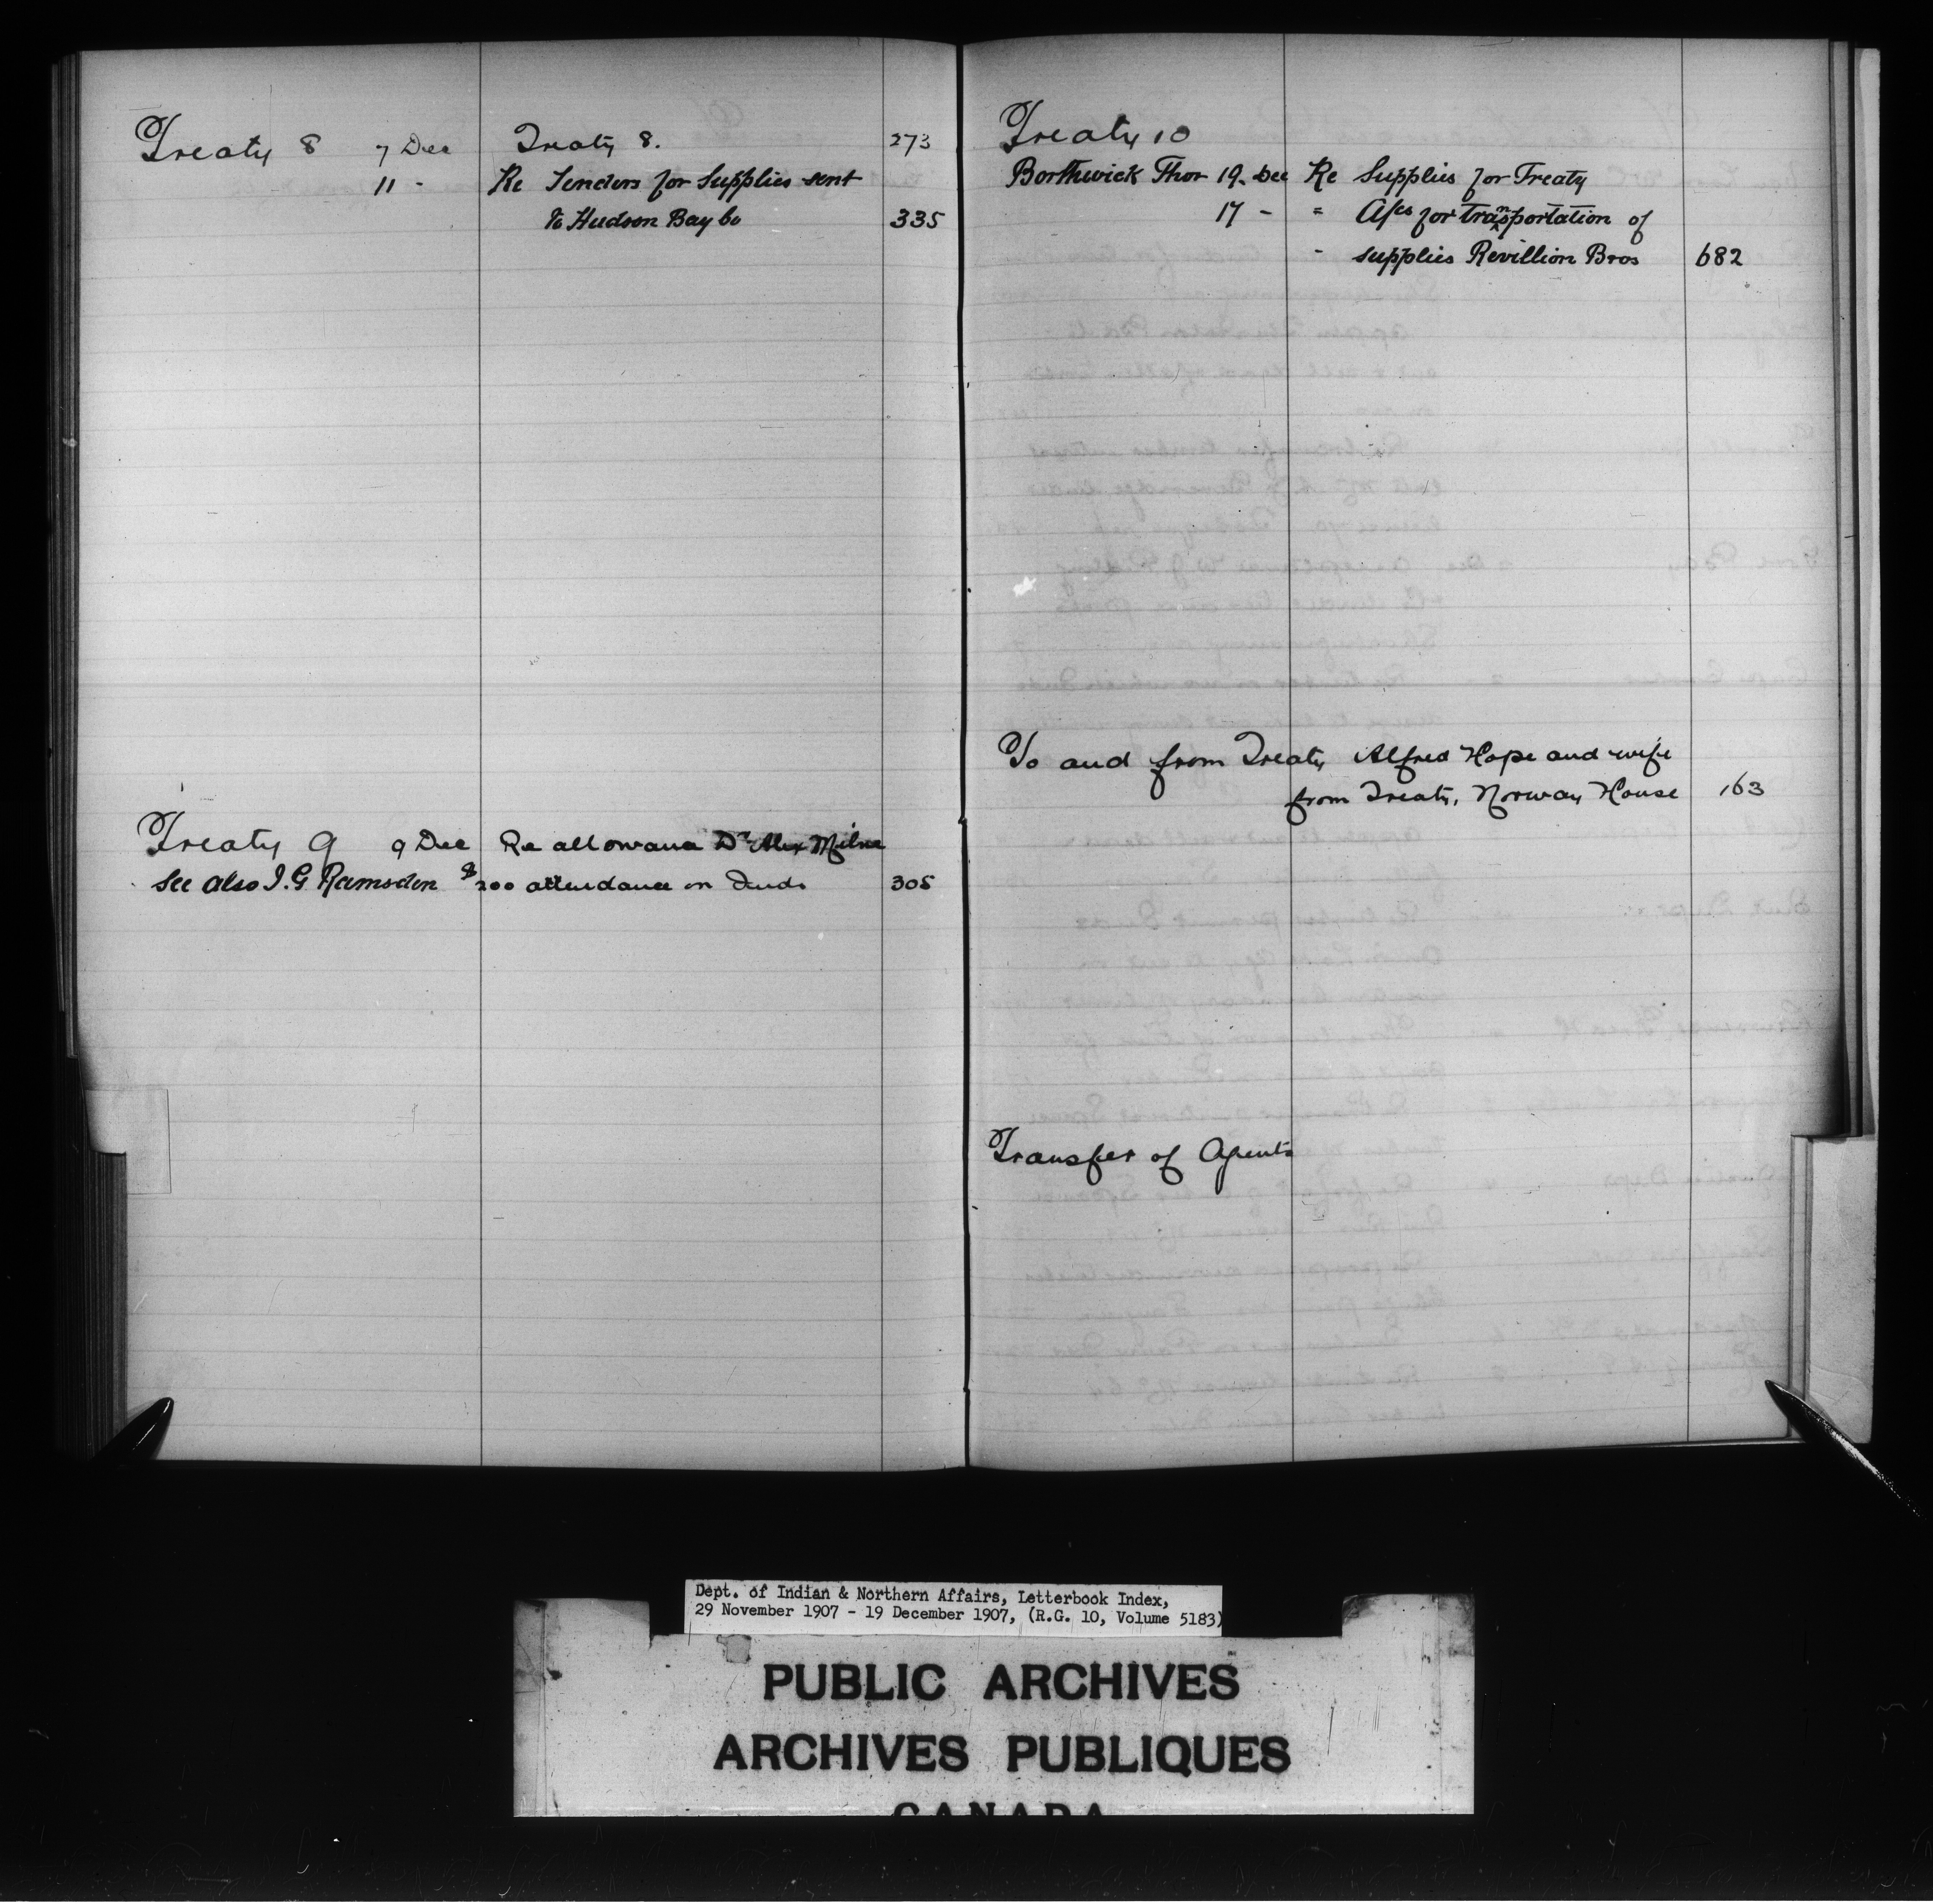 Treaty 8 7 Dec Treaty 8. 273
11 - Re Tenders for Supplies sent
To Hudson Bay Co 335
Treaty 9 9 Dec Re allowance Dr Alex Milne
See also J.G Ramsden $200 attendance on Inds 305
Treaty 10
Borthwick Thos 19. Dec Re Supplies for Treaty
17 - " A/cs for transportation of
" supplies Revillion Bros 682
To and from Treaty Alfred Hope and wife
from Treaty, Norway House 163
Transfer of Agents
Dept. of Indian & Northern Affairs, Letterbook Index,
29 November 1907 - 19 December 1907, (R.G. 10, Volume 5183)
PUBLIC ARCHIVES
ARCHIVES PUBLIQUES
CANADA